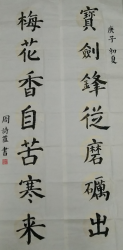 寶劍鋒從磨礪出
庚子初夏
梅花香自苦寒来
周
書